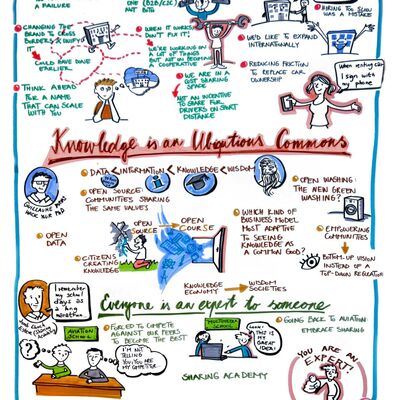 A FAILURE
ONE (B2B/C2C)
NOT BOTH
HIRING TOO SOON
WAS A MISTAKE
CHANGING THE
BRAND TO CROSS
BORDERS & UNIFY
IT
COULD HAVE DONE
EARLIER
WHEN IT WORKS
DON'T FUX IT!
WE'RE WORKING ON
LOT OF THINGS
BUT NOT ON BECOMING
A COOPERATIVE
WE'D LIKE TO EXPAND
INTERNATIONALLY
WE ARE IN A
COST SHARING
SPACE
NOT AN INCENTIVE
TO SHARE FOR
DRIVERS ON SHORT
DISTANCE
REDUCING FRICTION
TO REPLACE CAR
OWNERSHIP
When renting cars
I sign with
my phone
THINK AHEAD
FOR A NAME
THAT CAN SCALE
WITH YOU
Knowledge is an Ubiquitous Commons
DATA < INFORMATION < KNOWLEDGE < WISDOM
HACK YOUR PhD
OPEN SOURCE:
COMMUNITIES SHARING
THE SAME VALUES
OPEN WASHING:
THE NEW GREEN
WASHING?
OPEN
DATA
OPEN
SOURCE
OPEN
COURSE
WHICH KIND OF
BUSINESS MODEL
MOST ADAPTIVE
TO SEEING
KNOWLEDGE AS
A COMMON GOOD?
EMPOWERING
COMMUNITIES
BOTTOM-UP VISION
INSTEAD OF A
TOP-DOWN REGULATOR
CITIZENS
CREATING
KNOWLEDGE
KNOWLEDGE
ECONOMY
WISDOM
SOCIETIES
Everyone is an expert to someone
I remember
my school
days as a
long
vacation
AVIATION
SCHOOL
FORCED TO COMPETE
AGAINST OUR PEERS
TO BECOME THE BEST
I'M NOT
TELLING
YOU, YOU ARE
MY COMPETITOR
MULTIMEDIA
SCHOOL
LOOK!
THIS IS
MY GREAT
IDEA!
GOING BACK TO AVIATION:
EMBRACE SHARING
SHARING ACADEMY
YOU ARE AN
EXPERT!